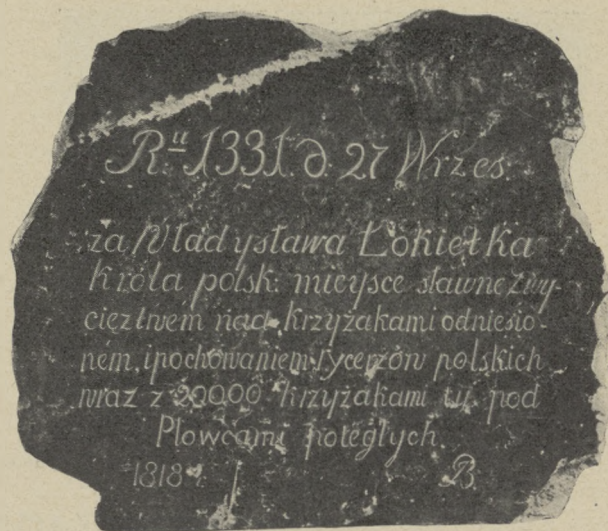 Rᵘ 1331. d. 27 Wrzes:
za Władysława Łokietka
króla polsk: mieysce sławne zwy-
cięztwem nad krzyżakami odniesio-
ném, i pochowaniem rycerzów polskich
wraz z 20000 krzyżakami tu pod
Płowcami poległych.
1818 r. B.